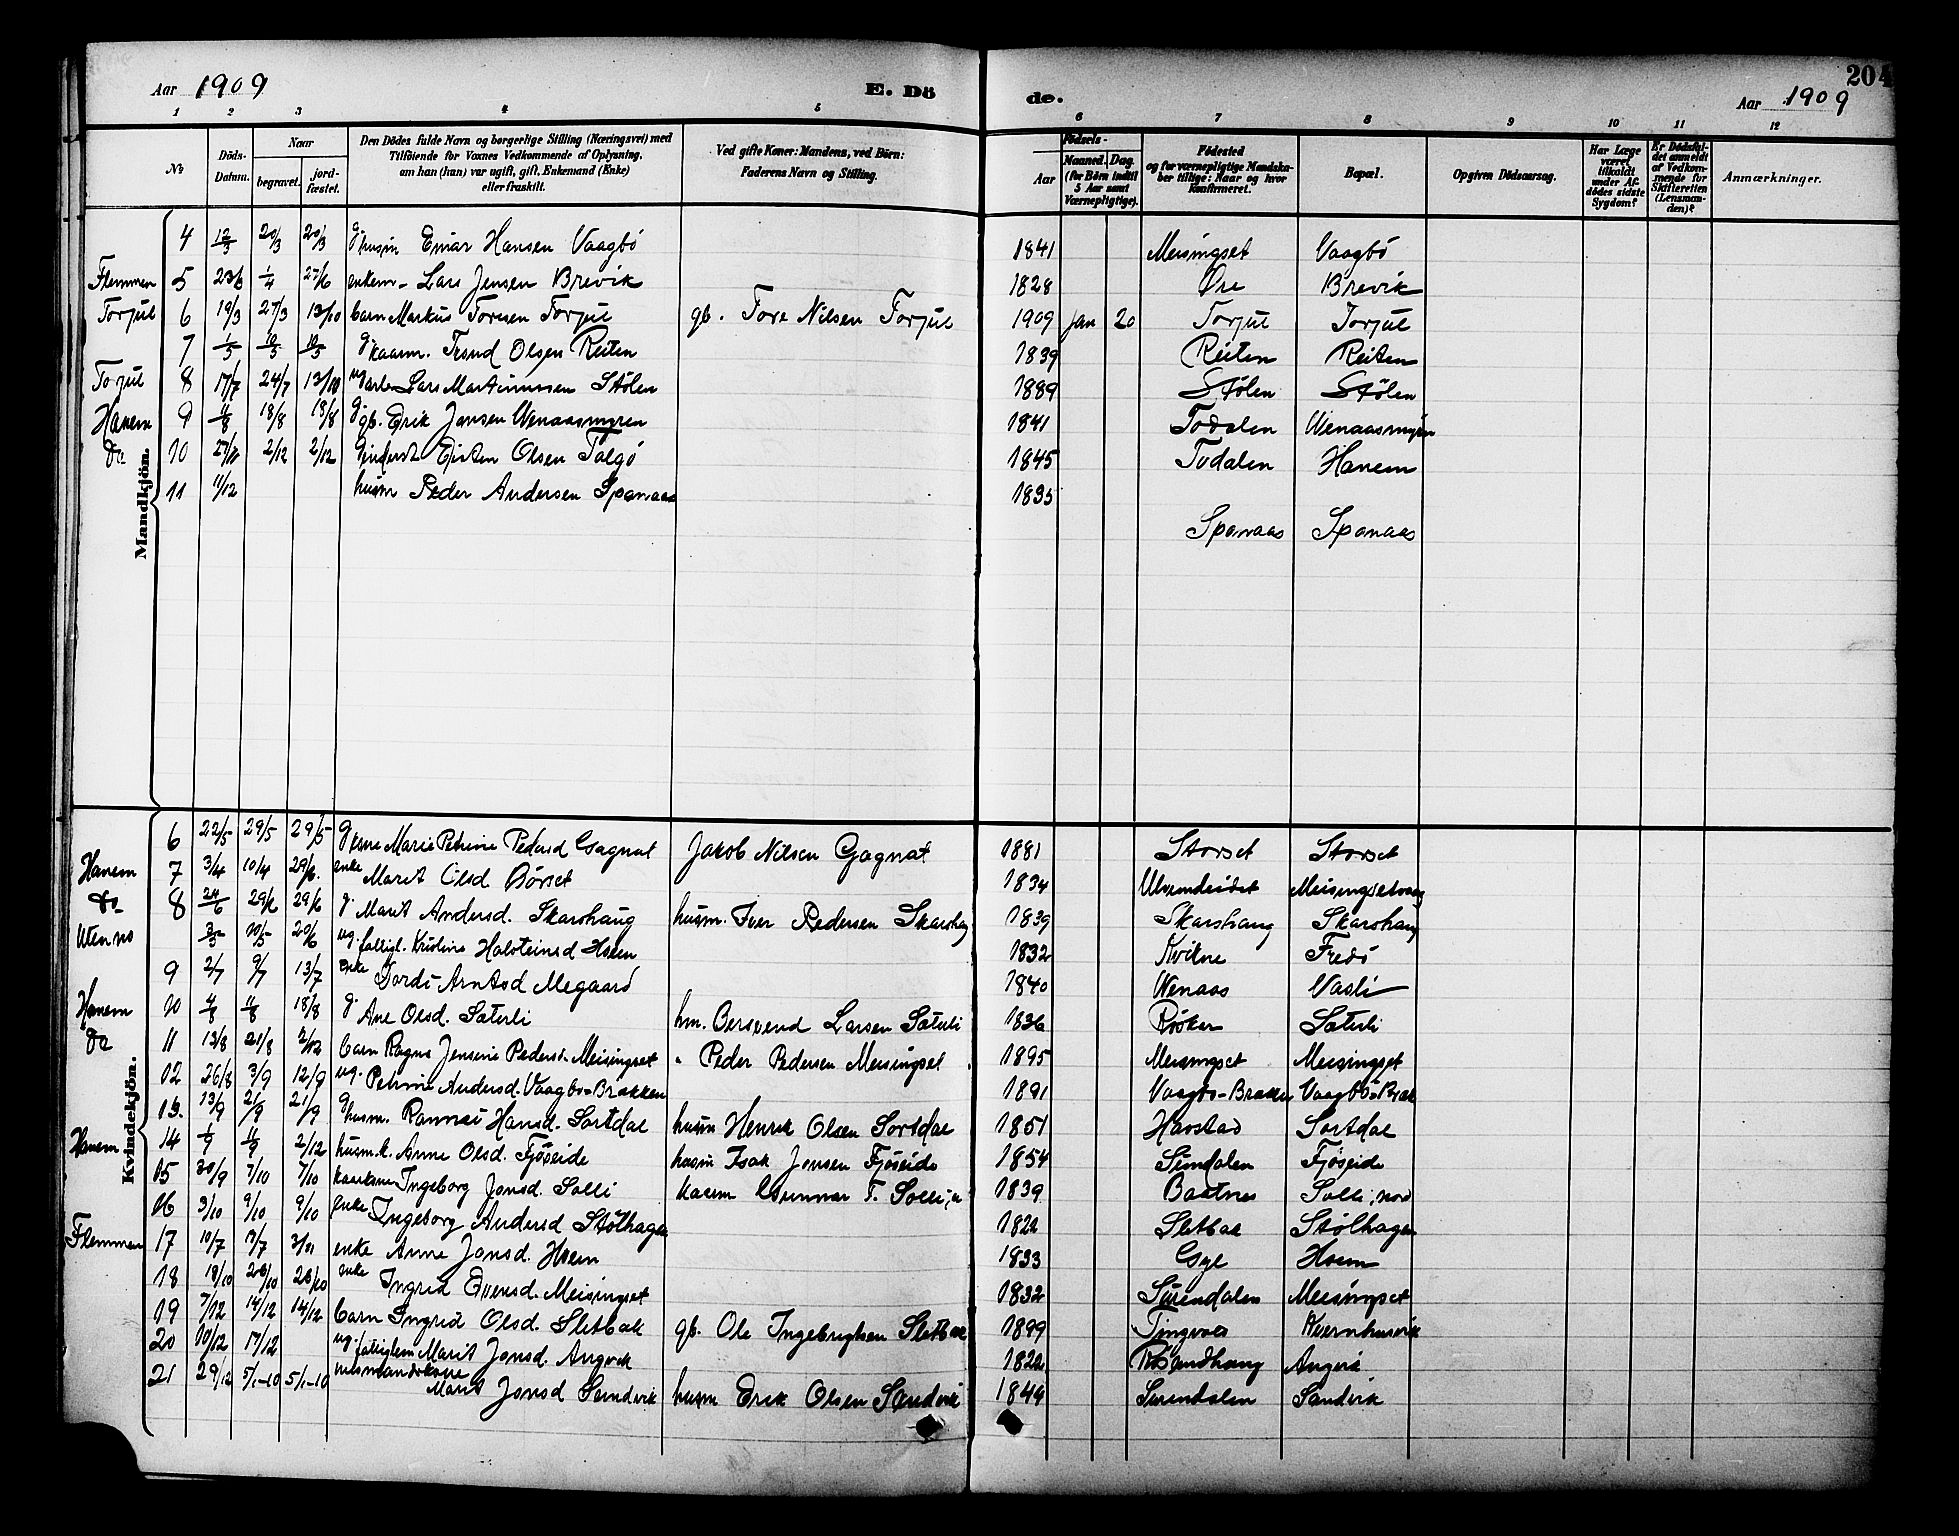 Aar 1909
E. Dö
de.
204
Aar 1909
1 2 3 4 5 6 7 8 9 10 11 12
No
Döds-Datum.
Naar
begravet.
jord-fæstet.
Den Dödes fulde Navn og borgerlige Stilling (Næringsvei) med Tilföiende for Voxnes Vedkommende af Oplysning, om han (hun) var ugift, gift, Enkemand (Enke) eller fraskilt.
Ved gifte Koner: Mandens, ved Börn: Faderens Navn og Stilling.
Födsels-
Aar
Maaned. Dag.
(for Börn indtil 5 Aar samt Værnepligtige).
Födested og for værnepligtige Mandska-ber tillige: Naar og hvor Konfirmeret.
Bopæl.
Opgiven Dödsaarsag.
Har Læge været tilkaldt under Af-dödes sidste Sygdom?
Er Dödsfal-det anmeldt af Vedkom-mende for Skifteretten (Lensman-den)?
Anmærkninger.
Mandkjön.
4 12/3 20/3 20/3 g husm Einar Hansen Vaagbö 1841 Meisingset Vaagbö
Flemmen 5 1/4 27/6 enkem Lars Jensen Brevik 1828 Øre Brevik
Torjul 6 19/3 27/3 13/10 barn Markus Toresen Torjul gb. Tore Nilsen Torjul 1909 Jan 20 Torjul Torjul
7 1/5 10/5 10/5 g kaarm. Trond Olsen Reiten 1839 Reiten Reiten
Torjul 8 17/7 24/7 13/10 ug arb. Lars Martinussen Stølen 1889 Stølen Stølen
Hanem 9 11/8 18/8 18/8 g gb. Erik Jonsen Wenaasmyren 1841 Todalen Wenaasmyren
Do 10 27/11 2/12 2/12 Olsen Talgö 1845 Todalen Hanem
11 11/12 husm Peder Andersen Spanaas 1835
Spanaas Spanaas
Kvindekjön.
6 22/5 29/5 29/5 g kone Marie Petrine Pedersd Gagnat Jakob Nilsen Gagnat 1881 Storset Storset
Hanem 7 3/4 10/4 29/6. enke Marit Olsd Börset 1834 Ulvundeidet Meisingsetvaag
Do 8 24/6 29/6 29/6 g. Marit Andersd. Skarshaug husm. Iver Pedersen Skarshaug 1839 Skarshaug Skarshaug
Wenns 3/5 10/5 20/6 ug. fattigl. Kristine Halsteinsd Hoem 1832 Kvikne Fredö
9 2/7 9/7 13/7 enke Tordi Arntsd Megaard 1840 Wenaas Vasli
Hanem 10 4/8 11/8 18/8 g Ane Olsd. Sæterli hm. Larsen Sæterli 1836 Røsker Sæterli
Do 11 13/8 21/8 2/12 barn Ragna Jensine Pedersd. Meisingset " Peder Pedersen Meisingset 1895 Meisingset Meisingset
12 26/8 3/9 12/9 ug. Petrine Andersd. Vaagbö-Brækken 1891 Vaagbö-Brækken Vaagbö-Bræk
13. 13/9 21/9 21/9 g husm. Hansd. Sortdal husm Henrik Olsen Sortdal 1851 Havstad Sortdal
Hanem 14 1/9 11/9 2/12 husm.k. Anne Olsd. Fjöseide husm Isak Jonsen Fjöseide 1854 Fjöseide
15 30/9 7/10 7/10 kaarkone Ingeborg Jonsd. Solli kaarm Gunnar T. Solli, n 1839 Baatnes Solli, nord
16 3/10 9/10 9/10 enke Ingeborg Andersd Stølhagen 1822 Sletbak Stølhagen
Flemmen 17 10/7 enke Anne Jonsd. Hoem 1833 Gyl Hoem
18 19/10 26/10 26/10 enke Ingrid Evensd. Meisingset 1832 Surendalen Meisingset
19 7/12 14/12 14/12 barn Ingrid Olsd. Sletbak gb. Ole Ingebrigtsen Sletbak 1899 Tingvold Kvernhusvik
20 10/12 17/12 ug. fattiglem Marit Jonsd. Angvik 1822 Angvik
21 29/12 5/1-10 5/1-10 husmandskone Marit Jonsd Sandvik husm Erik Olsen Sandvik 1849 Surendalen Sandvik